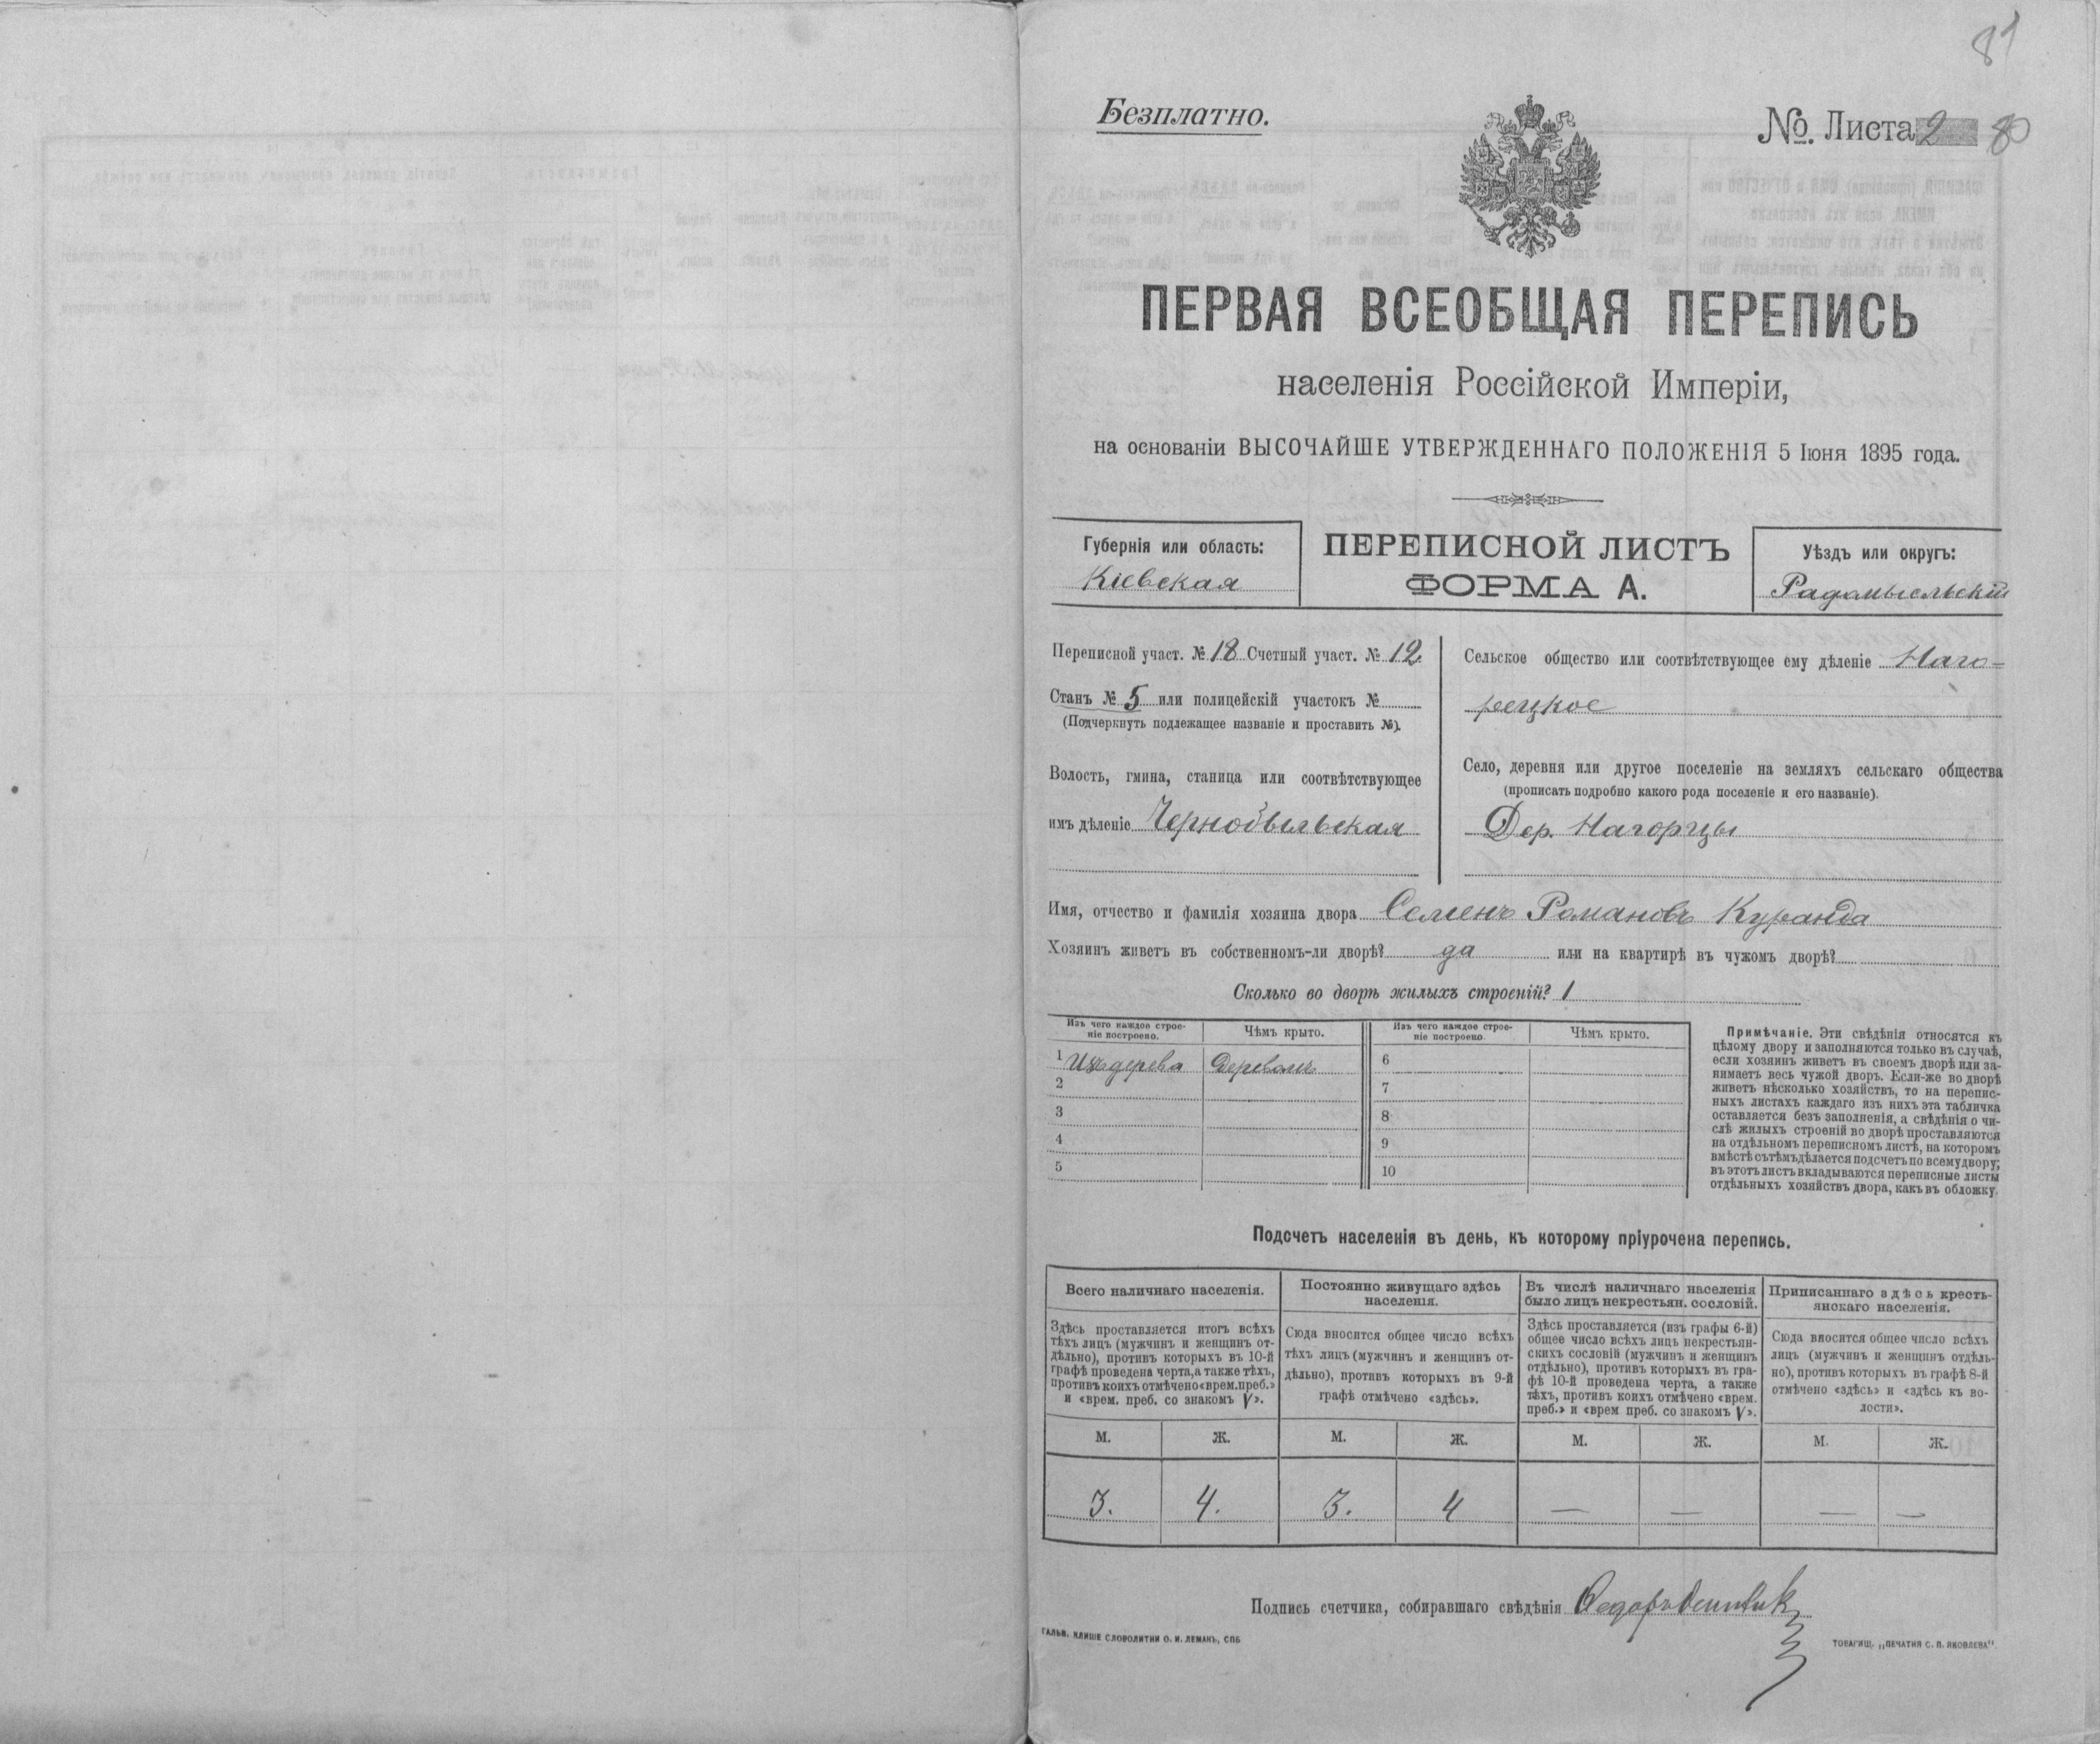 81
Безплатно.
№. Листа 2 80
ПЕРВАЯ ВСЕОБЩАЯ ПЕРЕПИСЬ
населенія Россійской Имперіи,
на основаніи ВЫСОЧАЙШЕ УТВЕРЖДЕННАГО ПОЛОЖЕНІЯ 5 Іюня 1895 года.
Губернія или область:
Кіевская
ПЕРЕПИСНОЙ ЛИСТЪ
ФОРМА А.
Уѣздъ или округъ:
Радомысльскій
Переписной участ. № 18 Счетный участ. № 12
Станъ № 5 или полицейскій участокъ №
(Подчеркнуть подлежащее названіе и проставить №).
Волость, гмина, станица или соотвѣтствующее
имъ дѣленіе Чернобыльская
Сельское общество или соотвѣтствующее ему дѣленіе Наго-
рецкое
Село, деревня или другое поселеніе на земляхъ сельскаго общества
(прописать подробно какого рода поселеніе и его названіе).
Дер. Нагорцы
Имя, отчество и фамилія хозяина двора Семенъ Романовъ Куранда
Хозяинъ живетъ въ собственномъ-ли дворѣ? да или на квартирѣ въ чужомъ дворѣ?
Сколько во дворѣ жилыхъ строеній? 1
Изъ чего каждое строе-
ніе построено.
Чѣмъ крыто.
Изъ чего каждое строе-
ніе построено.
Чѣмъ крыто.
1 Изъ дерева Деревомъ 6
2 7
3 8
4 9
5 10
Примѣчаніе. Эти свѣдѣнія относятся къ
цѣлому двору и заполняются только въ случаѣ,
если хозяинъ живетъ въ своемъ дворѣ или за-
нимаетъ весь чужой дворъ. Если-же во дворѣ
живетъ нѣсколько хозяйствъ, то на перепис-
ныхъ листахъ каждаго изъ нихъ эта табличка
оставляется безъ заполненія, а свѣдѣнія о чи-
слѣ жилыхъ строеній во дворѣ проставляются
на отдѣльномъ переписномъ листѣ, на которомъ
вмѣстѣ сътѣмъ дѣлается подсчетъ по всему двору;
въ этотъ листъ вкладываются переписные листы
отдѣльныхъ хозяйствъ двора, какъ въ обложку.
Подсчетъ населенія въ день, къ которому пріурочена перепись.
Всего наличнаго населенія.
Здѣсь проставляется итогъ всѣхъ
тѣхъ лицъ (мужчинъ и женщинъ от-
дѣльно), противъ которыхъ въ 10-й
графѣ проведена черта, а также тѣхъ,
противъ коихъ отмѣчено «врем. преб.»
и «врем. преб. со знакомъ V».
Постоянно живущаго здѣсь
населенія.
Сюда вносится общее число всѣхъ
тѣхъ лицъ (мужчинъ и женщинъ от-
дѣльно), противъ которыхъ въ 9-й
графѣ отмѣчено «здѣсь».
Въ числѣ наличнаго населенія
было лицъ некрестьян. сословій.
Здѣсь проставляется (изъ графы 6-й)
общее число всѣхъ лицъ некрестьян-
скихъ сословій (мужчинъ и женщинъ
отдѣльно), противъ которыхъ въ гра-
фѣ 10-й проведена черта, а также
тѣхъ, противъ коихъ отмѣчено «врем.
преб.» и «врем преб. со знакомъ V».
Приписаннаго здѣсь кресть-
янскаго населенія.
Сюда вносится общее число всѣхъ
лицъ (мужчинъ и женщинъ отдѣль-
но), противъ которыхъ въ графѣ 8-й
отмѣчено «здѣсь» и «здѣсь къ во-
лости».
М. Ж. М. Ж. М. Ж. М. Ж.
3. 4. 3. 4 — — — —
Подпись счетчика, собиравшаго свѣдѣнія Федоръ
ГАЛЬВ. КЛИШЕ СЛОВОЛИТНИ О. И. ЛЕМАНЪ, СПБ
ТОВАРИЩ. „ПЕЧАТНЯ С. П. ЯКОВЛЕВА“.